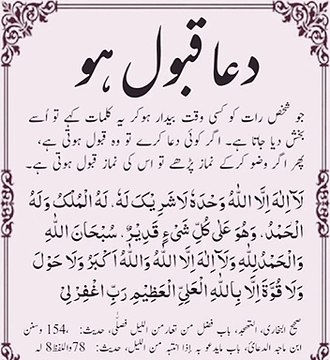 دعا قبول ہو
جو شخص رات کو کسی وقت بیدار ہو کر یہ کلمات کہے تو اُسے
بخش دیا جاتا ہے۔ اگر کوئی دعا کرے تو وہ قبول ہوتی ہے،
پھر اگر وضو کر کے نماز پڑھے تو اس کی نماز قبول ہوتی ہے۔
لَآ اِلٰهَ اِلَّا اللّٰهُ وَحْدَهٗ لَا شَرِيْكَ لَهٗ، لَهُ الْمُلْكُ وَلَهُ
الْحَمْدُ، وَهُوَ عَلٰى كُلِّ شَيْءٍ قَدِيْرٌ، سُبْحَانَ اللّٰهِ
وَالْحَمْدُ لِلّٰهِ وَلَآ اِلٰهَ اِلَّا اللّٰهُ وَاللّٰهُ اَكْبَرُ وَلَا حَوْلَ
وَلَا قُوَّةَ اِلَّا بِاللّٰهِ الْعَلِيِّ الْعَظِيْمِ رَبِّ اغْفِرْ لِيْ
صحیح البخاری، التھجد، باب فضل من تعار من اللیل فصلّٰی، حدیث: 154، وسنن
ابن ماجہ الدعائ، باب مایدعو بہ إذا انتبہ من اللیل، حدیث: 78 واللفظ لہ